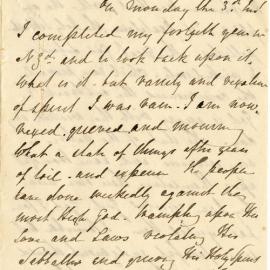 On Monday the 3rd Inst
I completed my fortyeth year in
N Zd. and to look back upon it
what is it. but vanity and vexation
of spirit I was vain. I am now
vexed. grieved and mourning
What a state of things after years
of toil. and expense The people
have done wickedly against the
most High God. trampling upon His
Love and Laws violating His
Sabbaths and grieving His Holy Spirit